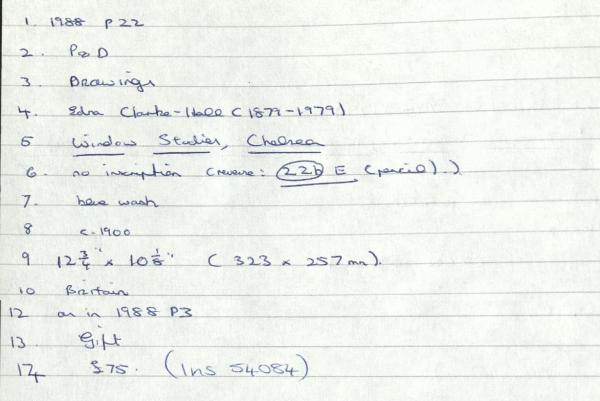 1. 1988 P22
2. P&D
3. Drawings
4. Edna Clarke-Hall (1879-1979)
5 Window Studies, Chelsea
6. no inscription (reverse: 22b E (pencil).)
7. wash
8 c.1900
9 12 3/4" x 10 1/8" (323 x 257mm).
10 Britain
12 as in 1988 P3
13. Gift
14 £75. (Ins 54084)